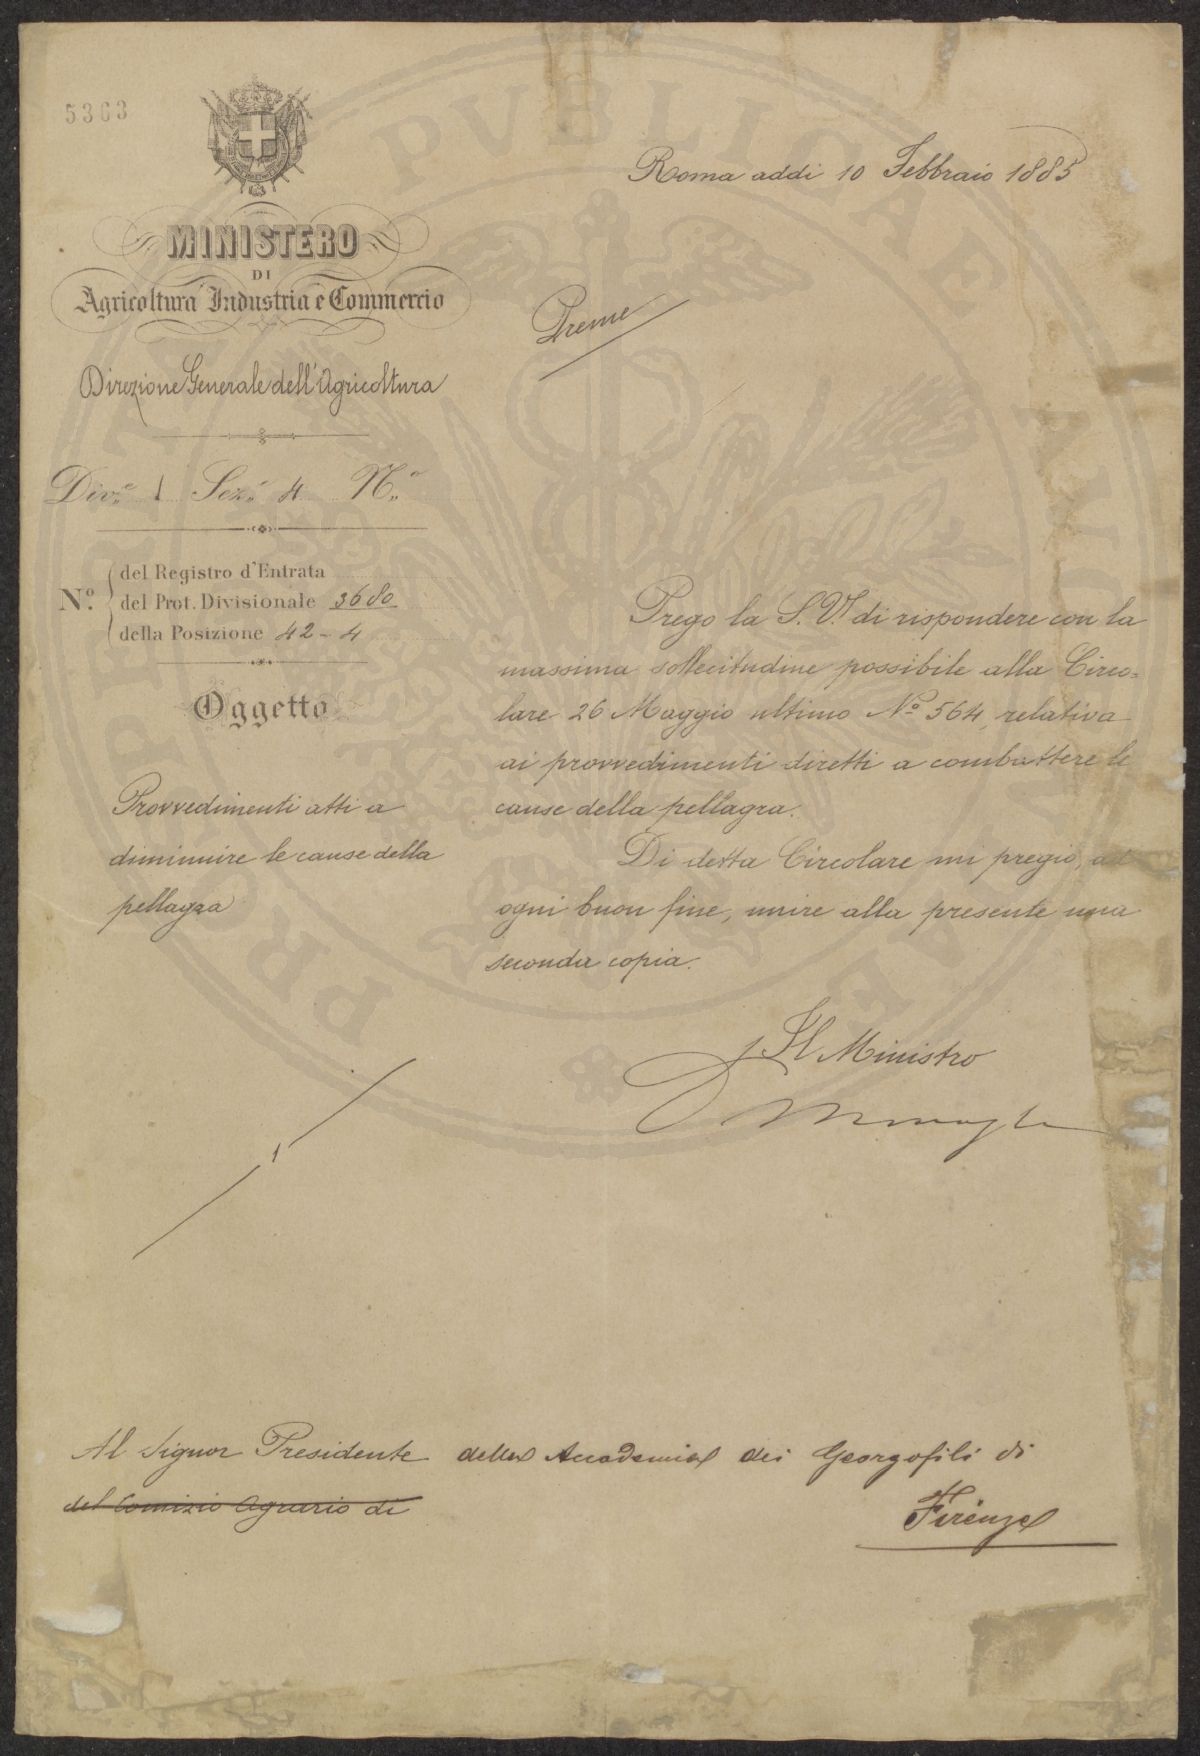 5363
Roma addi 10 Febbraio 1885
MINISTERO
DI
Agricoltura Industria e Commercio
Preme
Direzione Generale dell'Agricoltura
Div.e 1 Sez.e 4 N.o
N.o
del Registro d'Entrata
del Prot. Divisionale 3680
della Posizione 42-4
Oggetto
Provvedimenti atti a
diminuire le cause della
pellagra
Prego la S. V. di rispondere con la
massima sollecitudine possibile alla Circo=
lare 26 Maggio ultimo No 564, relativa
ai provvedimenti diretti a combattere le
cause della pellagra.
Di detta Circolare mi pregio, ad
ogni buon fine, unire alla presente una
seconda copia.
Il Ministro
Al Signor Presidente della Accademia dei Georgofili di
del Comizio Agrario di
Firenze